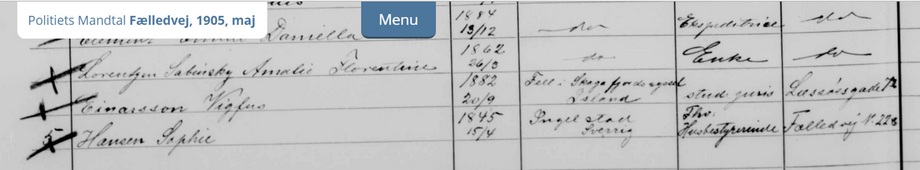 Politiets Mandtal Fælledvej, 1905, maj
Menu
Clemens Emma Daniella 1884 13/12 do Ekspeditrice do
Lorentzen Sabinsky Amalie Florentine 1862 26/3 do Enke do
Einarsson Vigfus 1882 20/9 Fell i Skagafjords Island stud juris
Hansen Sophie 1845 15/4 Sverrig Fhv. Husbestyrerinde Fælledvej N. 22